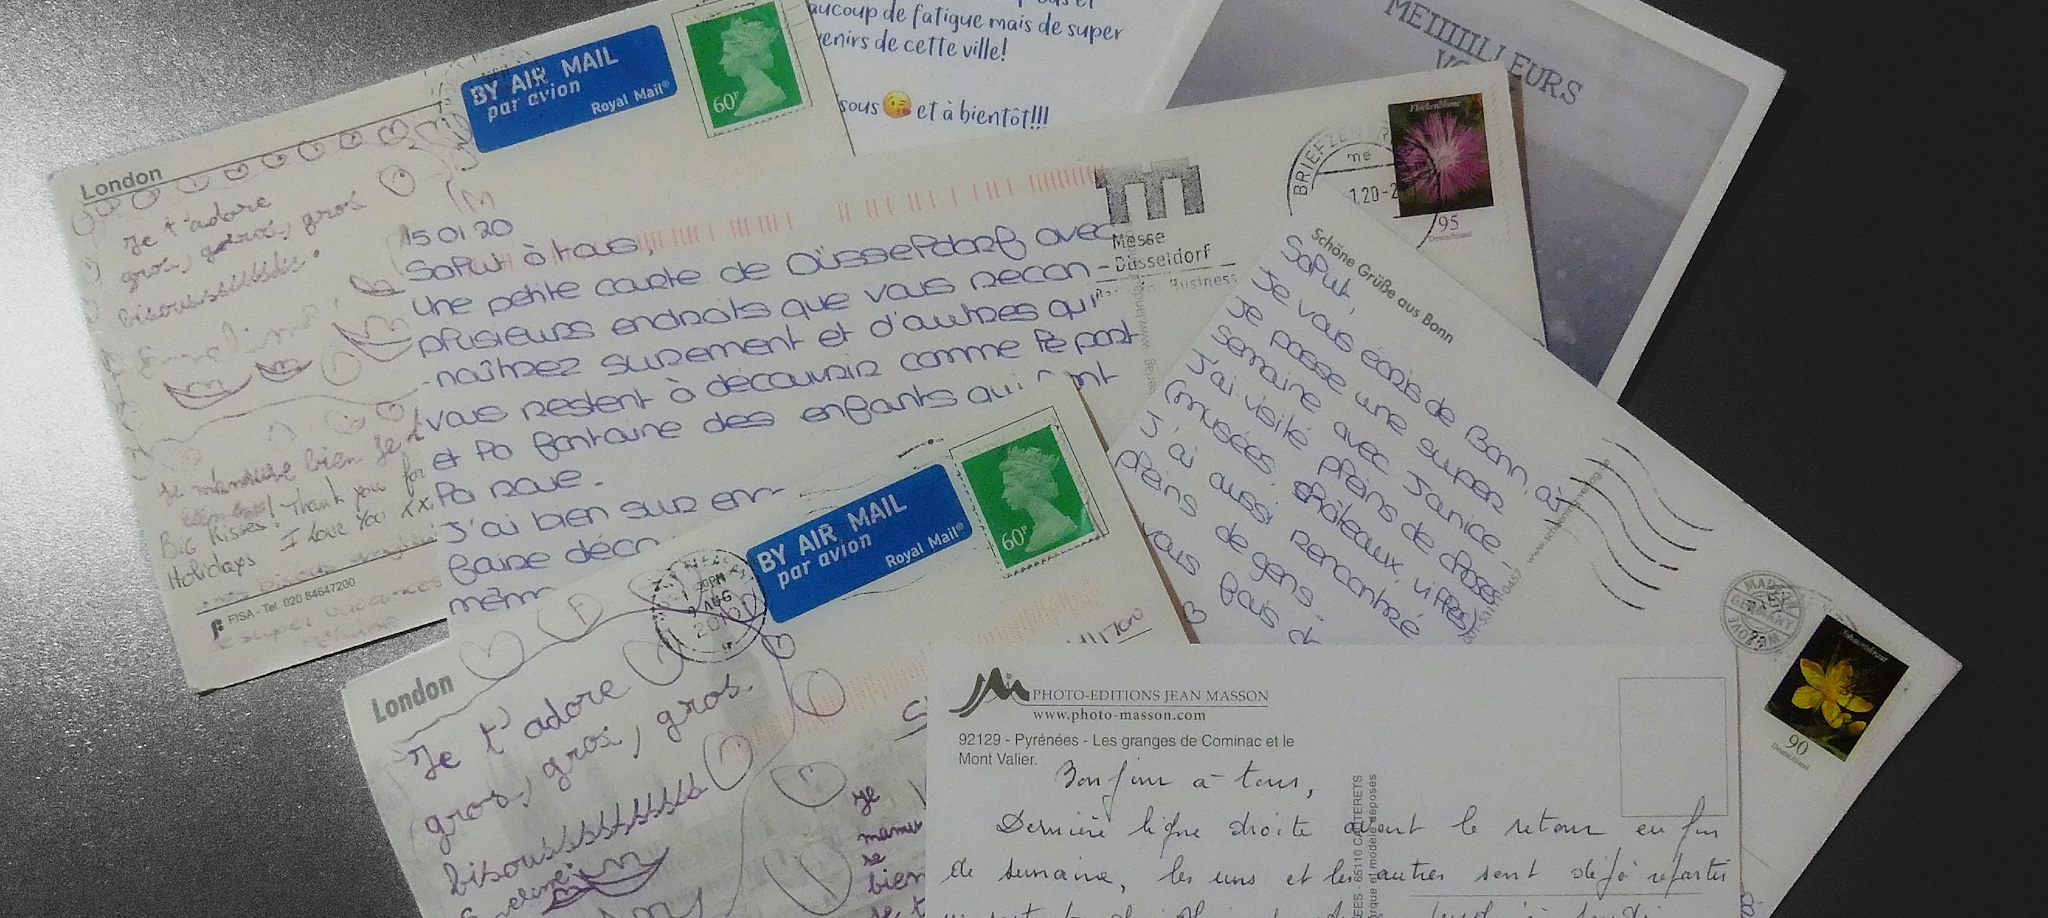 London
Je t'adore
gros, gros, gros
bisousssssssss.
BY AIR MAIL
par avion
Royal Mail®
60P
se manuure bien Je
Thank you for
BiG Kisses
Holidays I love You xx
FISA - Tel. 020 84647200
aucoup de fatigue mais de super
venirs de cette ville!
sous 😘 et à bientôt!!!
MEIIIIILLEURS
15 01 20
Salut à tous,
une petite carte de Düsseldorf avec
plusieurs endroits que vous recon-
-naîtrez surement et d'autres qui
vous restent à découvrir comme le port
et la fontaine des enfants qui font
la roue.
J'ai bien sur em-
faire déco
même
Messe
Düsseldorf
Business
BRIEFZE
me
1.20-2
Flockenblume
95
Deutschland
Schöne Grüße aus Bonn
Salut,
Je vous écris de Bonn, où
je passe une super
semaine avec Janice!
J'ai visité pleins de choses
(musées, châteaux, villes)
J'ai aussi rencontré
pleins de gens.
ous fais d
GERMANY
Johanniskraut
90
Deutschland
London
Je t'adore
gros, gros, gros.
bisousssssssssss
BY AIR MAIL
par avion
Royal Mail®
60P
AUG
je
se
bien
PHOTO-EDITIONS JEAN MASSON
www.photo-masson.com
92129 - Pyrénées - Les granges de Cominac et le
Mont Valier.
65110 CAUTERETS
arque et modèle déposés
Bonjour à tous,
Dernière ligne droite avant le retour en fin
de semaine, les uns et les autres sont déjà repartis